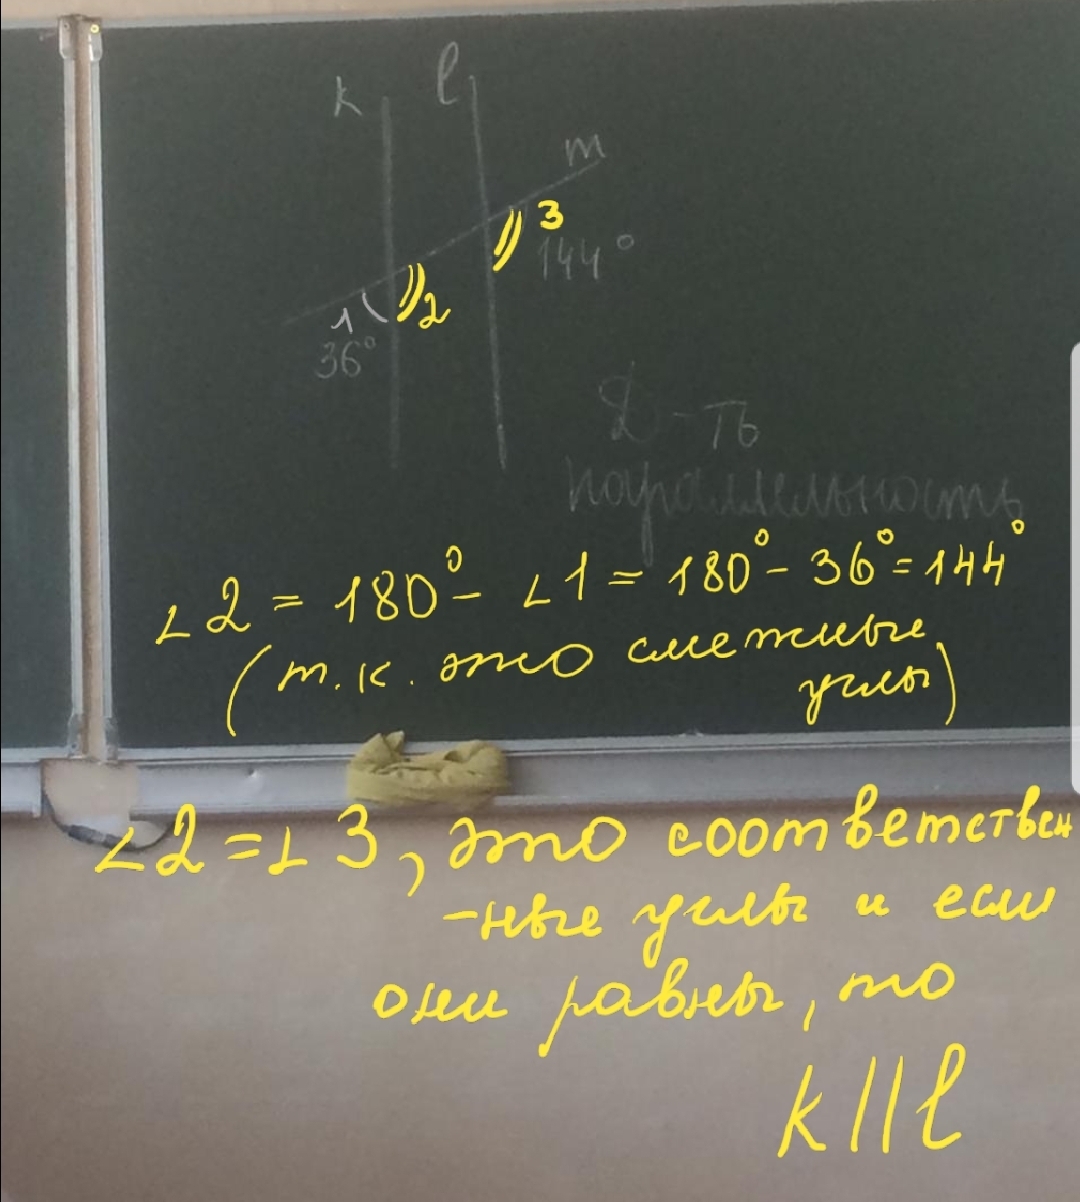 k
l
m
3
144°
1
2
36°
Д-ть
параллельность
∠2 = 180° - ∠1 = 180° - 36° = 144°
(т.к. это смежные
углы)
∠2 = ∠3, это соответствен
-ные углы и если
они равны, то
k || l